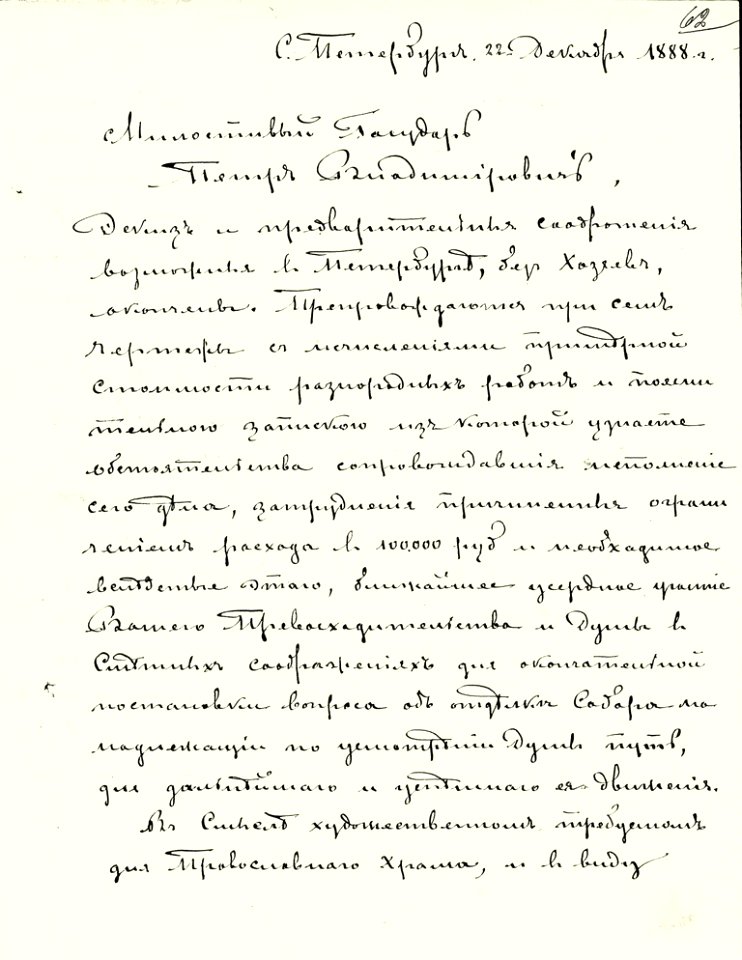 62
С. Петербургъ. 22го Декабря 1888 г.
Милостивый Государь
Петръ Владимiровичъ,
Эскизъ и предварительныя соображенiя
возможныя въ Петербургѣ, безъ Хозяевъ,
окончены. Препровождаются при семъ
чертежи съ исчисленiями примѣрной
стоимости разнородныхъ работъ и поясни
тельною запискою изъ которой узнаете
обстоятельства сопровождавшiя исполненiе
сего дѣла, затрудненiя причиненныя ограни
ченiемъ расхода въ 100.000 руб и необходимое
вслѣдствiе этаго, ближайшее усердное участiе
Вашего Превосходительства и Думы въ
Смѣтныхъ соображенiяхъ для окончательной
постановки вопроса объ отдѣлкѣ Собора на
надлежащiй по усмотрѣнiю Думы путь,
для дальнѣйшаго и успѣшнаго ея движенiя.
Въ Смыслѣ художественномъ требуемомъ
для Православнаго Храма, и въ виду